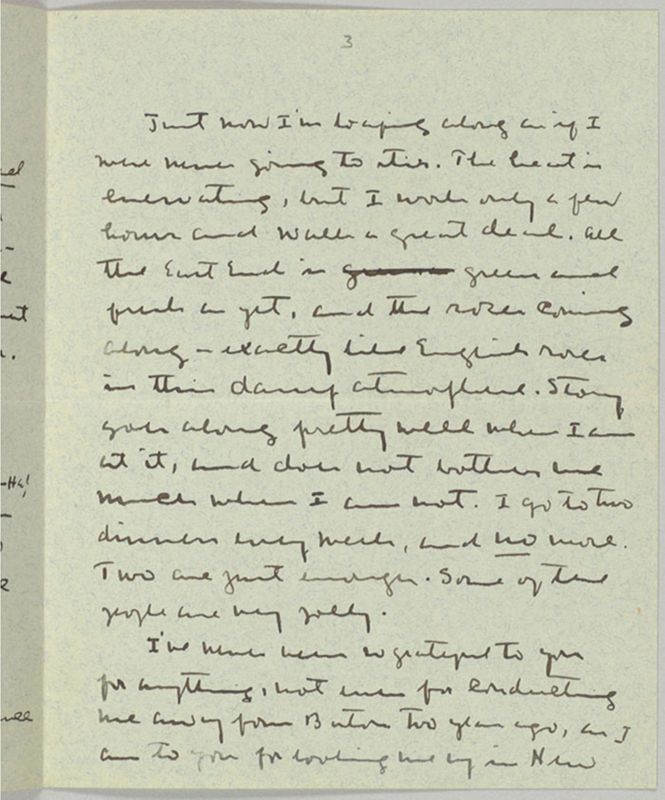 3
Just now I'm loafing along as if I
were never going to stir. The heat is
enervating, but I work only a few
hours and walk a great deal. All
the East End is green and
fresh as yet, and the roses coming
along - exactly like English roses
in this damp atmosphere. Story
goes along pretty well when I am
at it, and does not bother me
much when I am not. I go to two
dinners every week, and no more.
Two are just enough. Some of the
people are very jolly.
I've never been so grateful to you
for anything, not even for conducting
me away from Boston two years ago, as I
am to you for looking me up in New
-Ha!